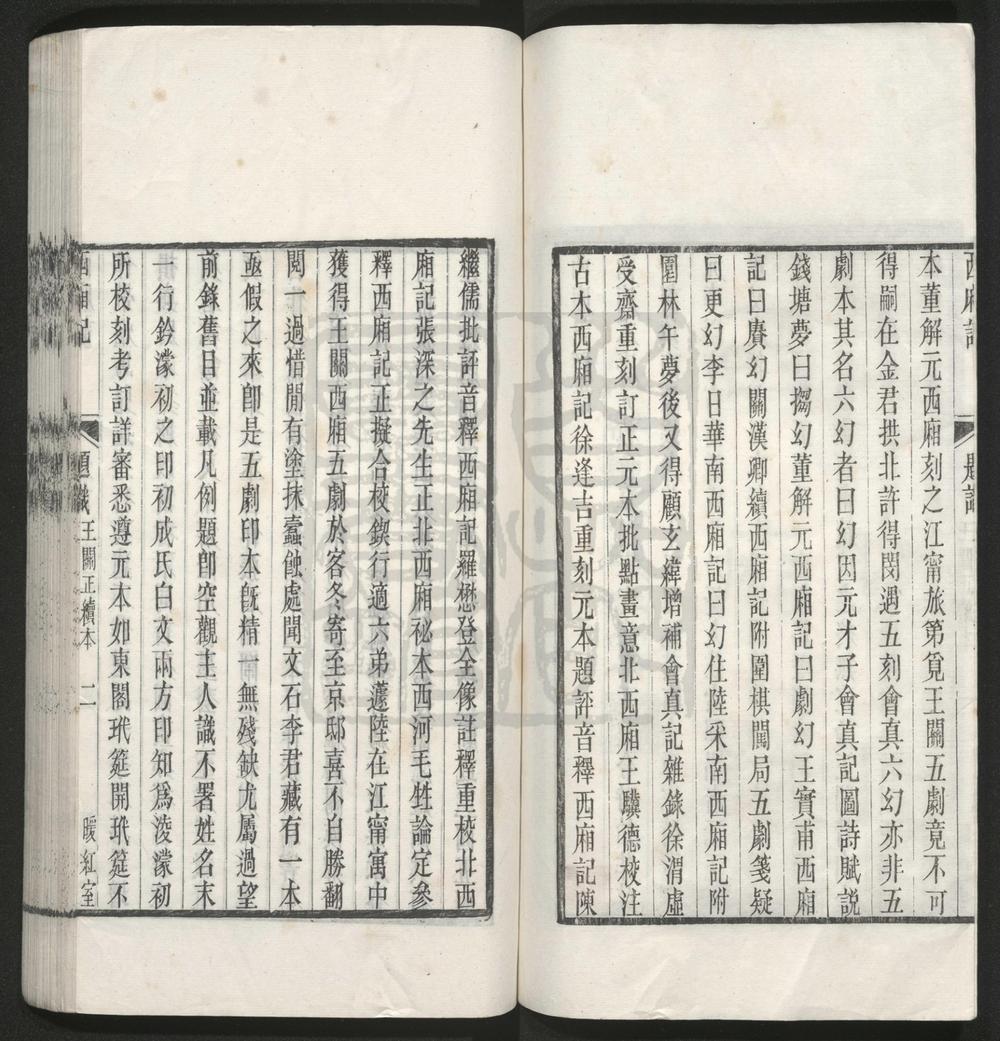 西廂記 題識
本董解元西廂刻之江甯旅第覓王關五劇竟不可
得嗣在金君拱北許得閔遇五刻會真六幻亦非五
劇本其名六幻者曰幻因元才子會真記圖詩賦説
錢塘夢曰搊幻董解元西廂記曰劇幻王實甫西廂
記曰賡幻關漢卿續西廂記附圍棋闖局五劇箋疑
曰更幻李日華南西廂記曰幻住陸采南西廂記附
園林午夢後又得顧玄緯增補會真記雜錄徐渭虛
受齋重刻訂正元本批點畫意北西廂王驥德校注
古本西廂記徐逢吉重刻元本題評音釋西廂記陳
繼儒批評音釋西廂記羅懋登全像註釋重校北西
廂記張深之先生正北西廂秘本西河毛甡論定參
釋西廂記正擬合校鍥行適六弟蘧陸在江甯寓中
獲得王關西廂五劇於客冬寄至京邸喜不自勝翻
閱一過惜閒有塗抹蠹蝕處聞文石李君藏有一本
亟假之來卽是五劇印本旣精一無殘缺尤屬過望
前錄舊目並載凡例題卽空觀主人識不署姓名末
一行鈐濛初之印初成氏白文兩方印知爲淩濛初
所校刻考訂詳審悉遵元本如東閣玳筵開玳筵不
西廂記 題識 王關正續本 二 暖紅室